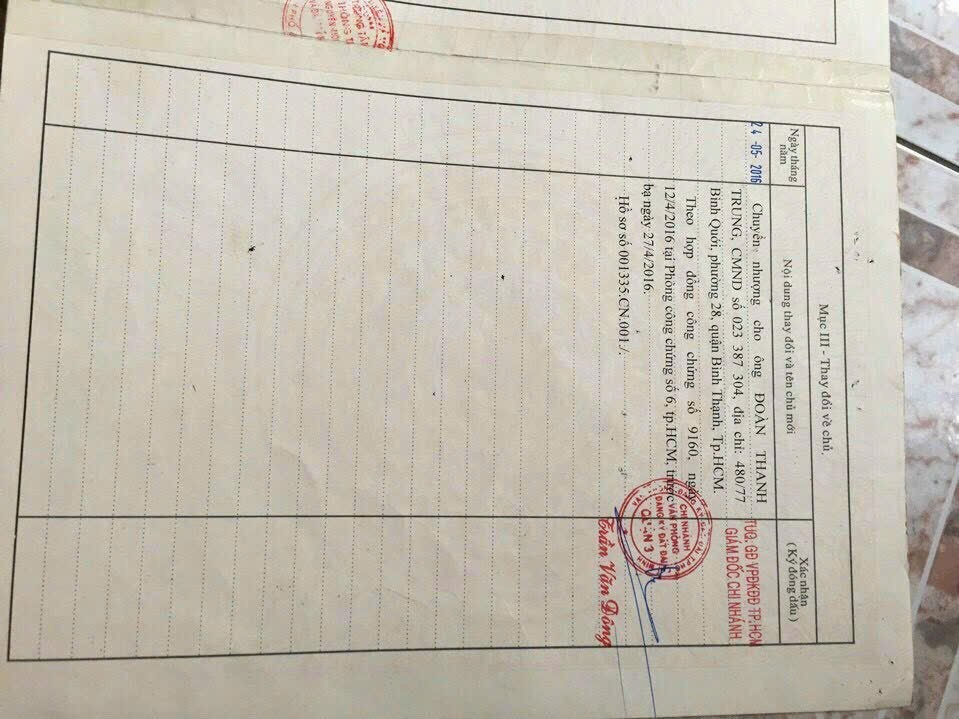 Mục III - Thay đổi về chủ.
Ngày tháng năm
Nội dung thay đổi và tên chủ mới
Xác nhận
(Ký đóng dấu)
24-05-2016
Chuyển nhượng cho ông ĐOÀN THANH
TRUNG, CMND số 023 387 304, địa chỉ: 480/77
Bình Quới, phường 28, quận Bình Thạnh, Tp.HCM.
Theo hợp đồng công chứng số 9160, ngày
12/4/2016 tại Phòng công chứng số 6, tp.HCM, trước
bạ ngày 27/4/2016.
Hồ sơ số 001335.CN.001./.
TUQ. GĐ VPĐKĐĐ TP.HCM
GIÁM ĐỐC CHI NHÁNH
CHI NHÁNH
VĂN PHÒNG
ĐĂNG KÝ ĐẤT ĐAI
QUẬN 3
Trần Văn Đông